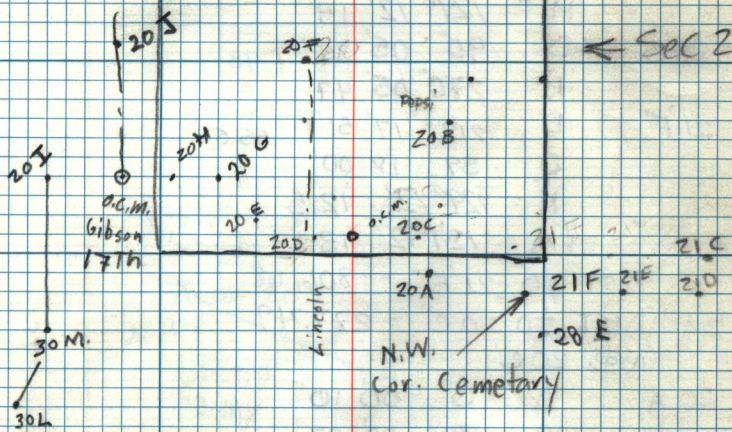 20J
20F
← Sec 2
Pepsi
20B
20H
20G
20I
o.c.m.
Gibson
17Th
20E
20D
o.c.m.
20C
21F
21C
20A
21F
21E
21D
Lincoln
28E
N.W.
Cor. Cemetary
30M.
30L